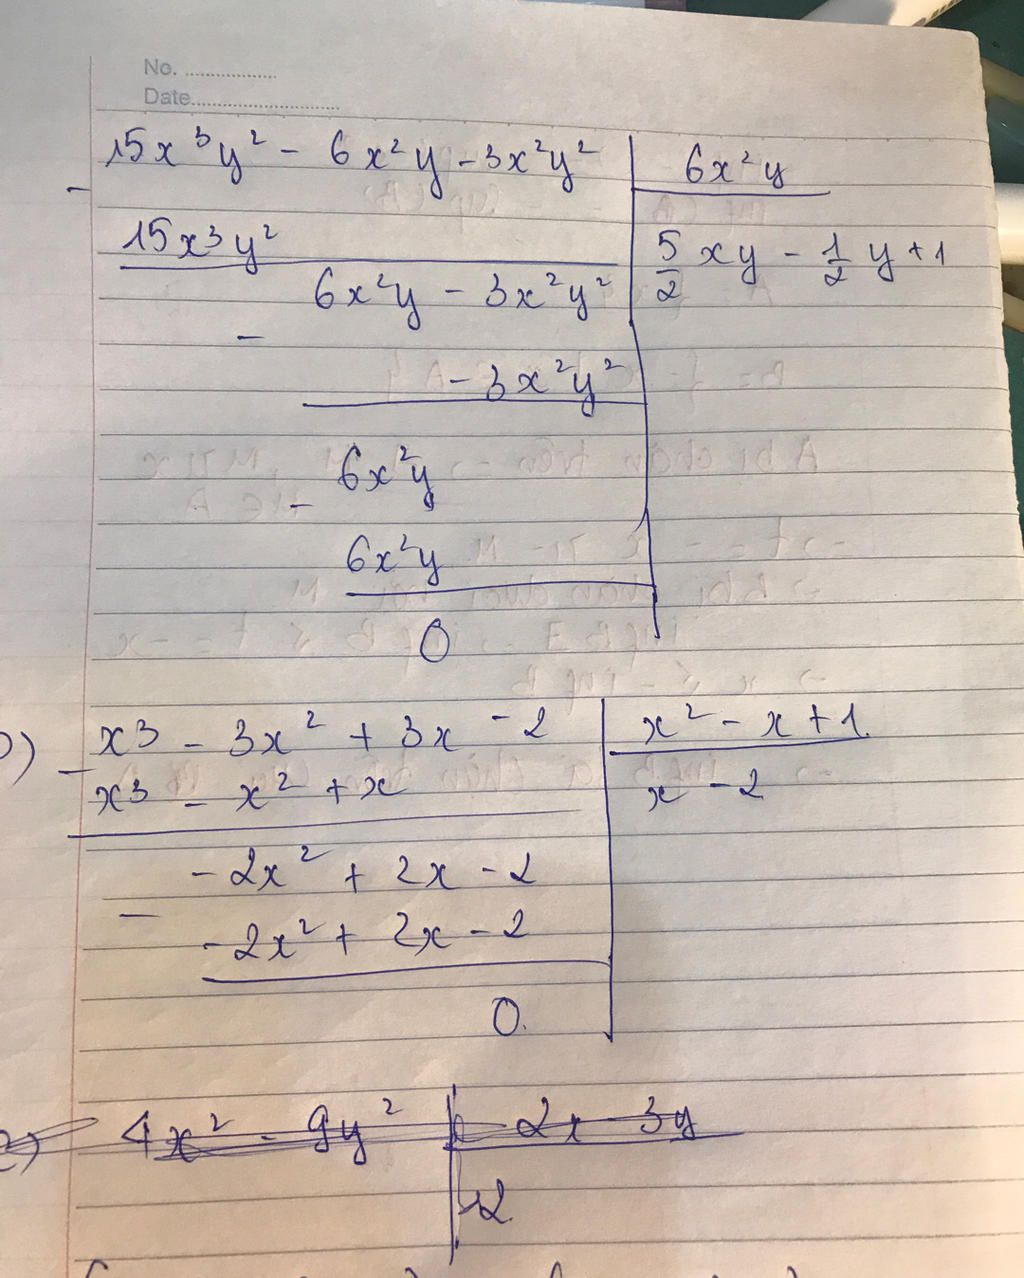 No. ....................
Date.................................
15x³y² - 6x²y - 3x²y² | 6x²y
-
15x³y² | 5/2 xy - 1/2 y + 1
6x²y - 3x²y²
-
- 3x²y²
6x²y
-
6x²y
0
x³ - 3x² + 3x - 2 | x² - x + 1
-
x³ - x² + x | x - 2
- 2x² + 2x - 2
-
- 2x² + 2x - 2
0
4x² - 9y² | 2x - 3y